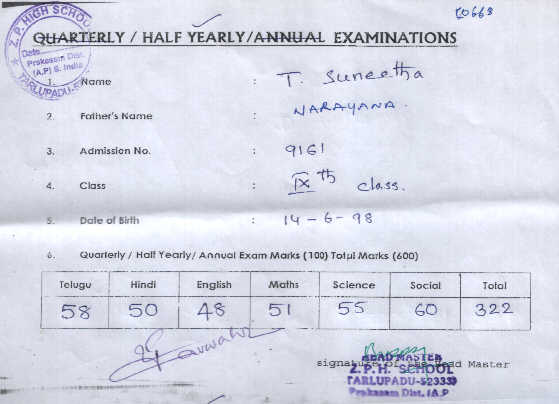 £0663
Z.P. HIGH SCHOOL
Date
Prakasam Dist.
(A.P) S. India
TARLUPADU
QUARTERLY / HALF YEARLY/ANNUAL EXAMINATIONS
1. Name : T. Suneetha
2. Father's Name : NARAYANA.
3. Admission No. : 9161
4. Class : IX th class.
5. Date of Birth : 14-6-98
6. Quarterly / Half Yearly/ Annual Exam Marks (100) Total Marks (600)
Telugu Hindi English Maths Science Social Total
58 50 48 51 55 60 322
signature of the Head Master
HEAD MASTER
Z.P.H. SCHOOL
TARLUPADU-523332
Prakasam Dist. (A.P